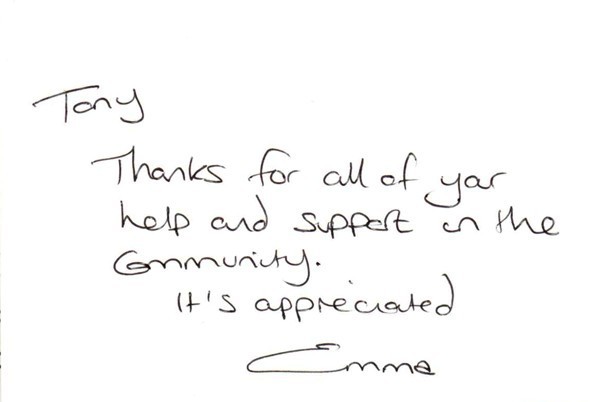 Tony
Thanks for all of your
help and support in the
Community.
It's appreciated
Emma